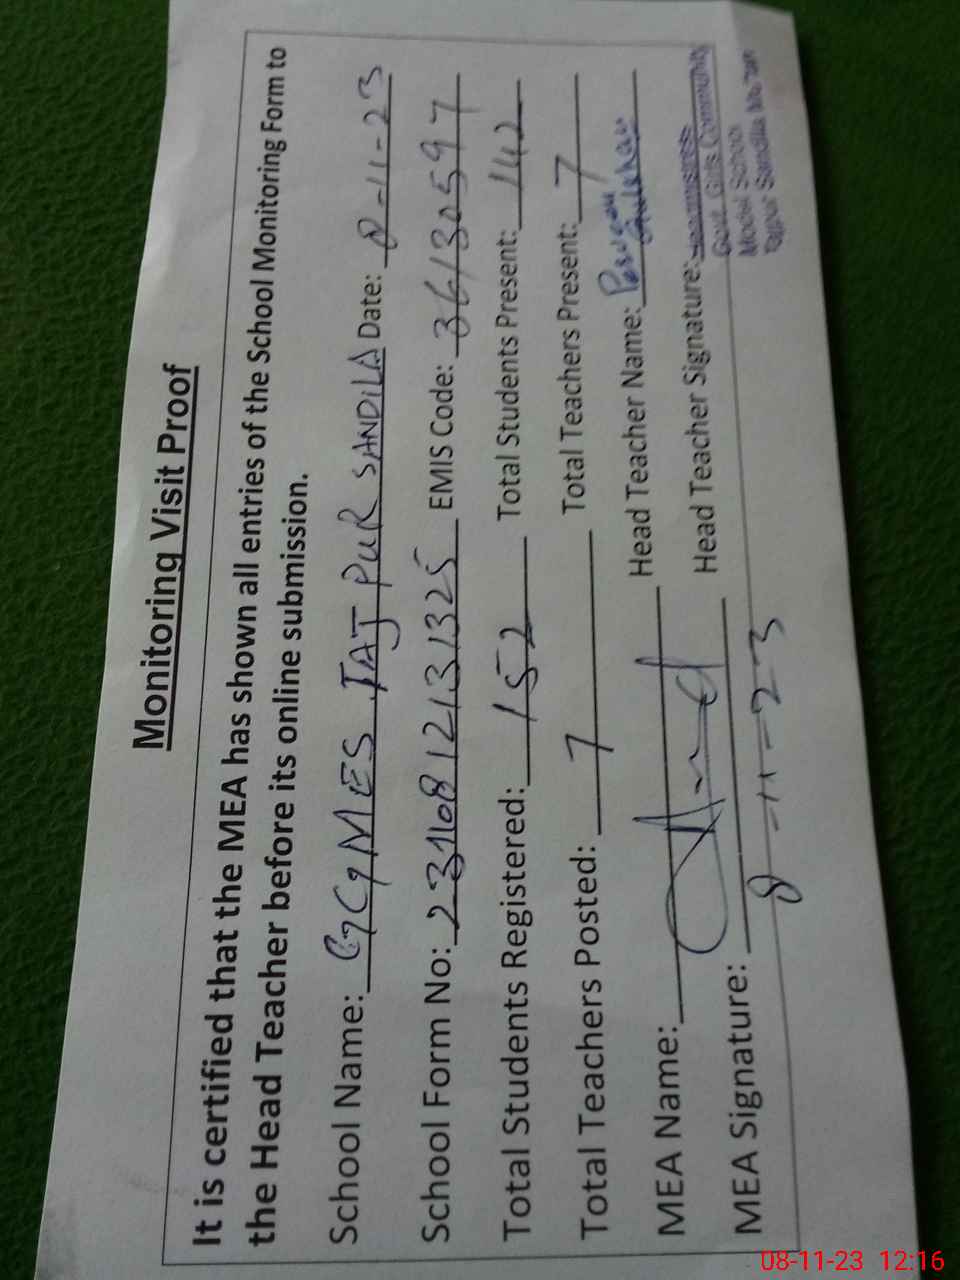 Monitoring Visit Proof
It is certified that the MEA has shown all entries of the School Monitoring Form to
the Head Teacher before its online submission.
School Name: GGMES TAJ PUR SANDILA Date: 8-11-23
School Form No: EMIS Code: 36130597
Total Students Registered: 152 Total Students Present: 142
Total Teachers Posted: 7 Total Teachers Present: 7
MEA Name: Head Teacher Name: Parveen Gulshan
MEA Signature: Head Teacher Signature:
8-11-23
Headmistress
Govt. Girls Community
Model School
Tajpur Sandila
08-11-23 12:16